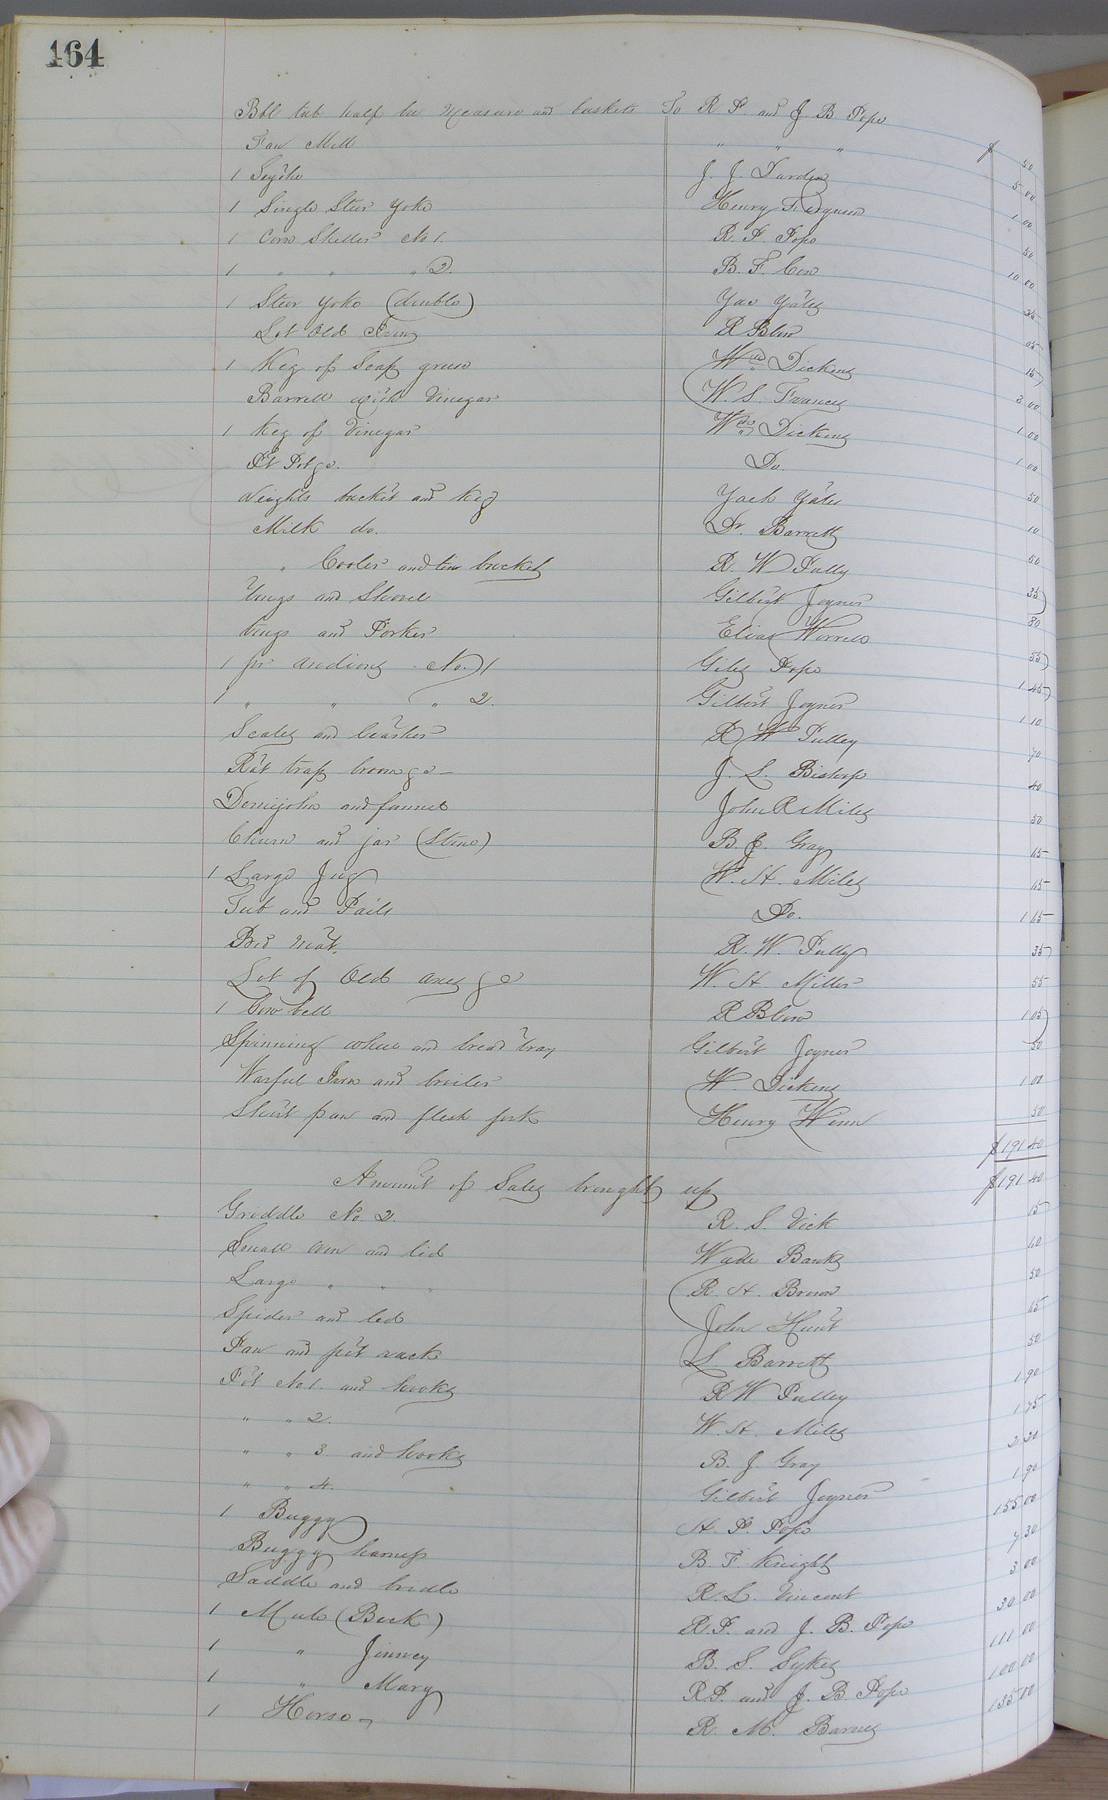 164
Bbl tub half bu measure and baskets To R P. and J. B Pope $ 50
Fan Mill " " " 5 00
1 Scythe J. J. Darden 1 00
1 Single Steer Yoke Henry Ferguson 50
1 Corn Sheller No 1. R. P. Pope 10 00
1 " " " 2. B. F. 35
1 Steer Yoke (double) Jac Yates 05
Lot Old Irons R Blow 15
1 Keg of Soap grease Wm Dickens 2 00
Barrell with Vinegar W. S. Francis 1 00
1 Keg of Vinegar Wm Dickens 1 00
Pt Pot &c. Do. 50
Weights bucket and keg Jack Yates 10
Milk do. Dr. Barrett 50
" Cooler and tin bucket R. W Pully 35
Tongs and Shovel Gilbert Joyner 80
tongs and Porker Elias Worrell 55
1 pr andions No. 1 Giles Pope 1 45
1 " " " 2. Gilbert Joyner 1 10
Scales and R W Pulley 70
Rat trap broom &c J. L. Bishop 40
Demijohn and funnel John R Miles 50
Churn and jar (Stone) B. J. Gray 65
1 Large Jug W. H. Miles 65
Tub and Pails Do. 1 15
Bed mat. R. W. Pully 35
Lot of Old axes &c W. H. Miller 55
1 Cow bell R Blow 1 05
Spinning wheel and bread tray Gilbert Joyner 50
Warful Iron and broiler W. Dickens 1 00
pan and flesh fork Henry Winn 50
$191 40
Amount of Sales brought up $191 40
Griddle No 2. R. S. Vick 15
Small oven and lid Wade Banks 60
Large " " " R. H. Brown 50
Spider and led John Hunt 65
Pan and pot rack L Barrett 50
Pot No 1. and hooks R W Pulley 1 90
" " 2. W. H. Miles 1 75
" " 3 and hooks B. J. Gray 2 20
" " 4. Gilbert Joyner 1 90
1 Buggy H. P. Pope 155 00
Buggy harness B. F. Knight 7 30
Saddle and bridle R. L. Vincent 3 00
1 Mule (Beck) R. P. and J. B. Pope 30 00
1 " Jinney B. S. Sykes 101 00
1 " Mary R P. and J. B Pope 100 00
1 Horse R. M. Barnes 135 00